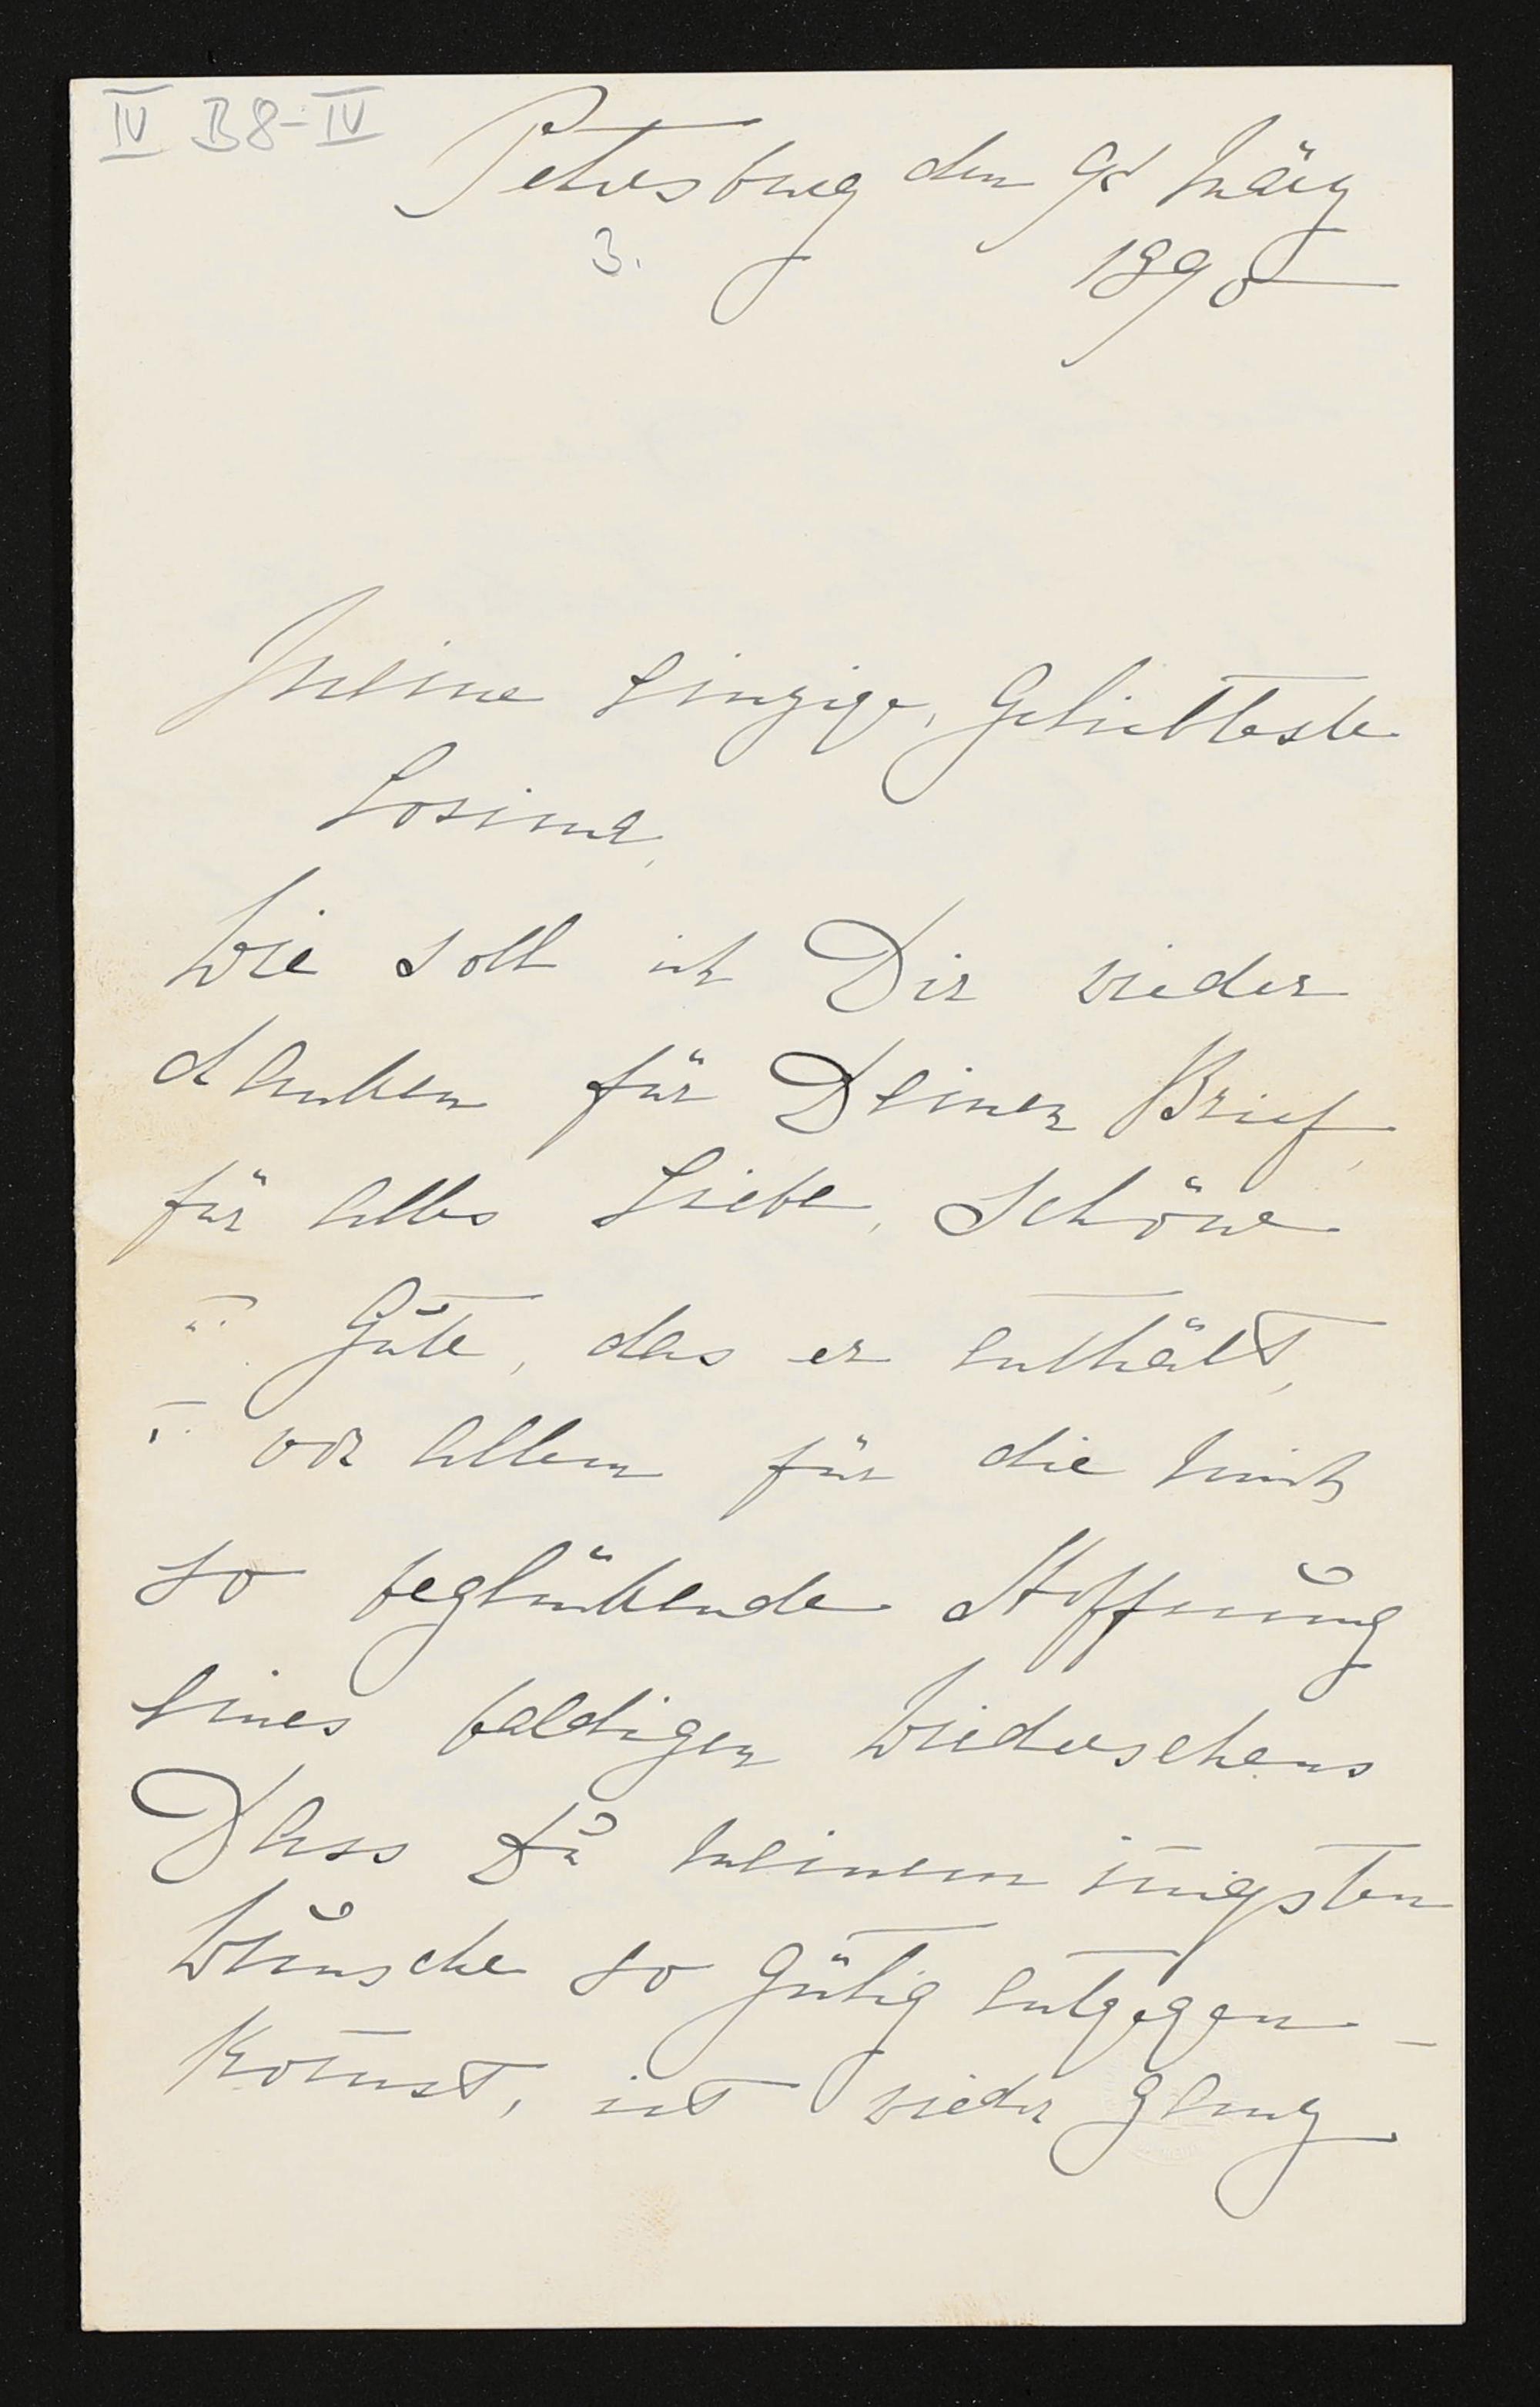 IV B8-IV
Petersburg den 9t März
3.
189
Meine Einzige, Geliebteste
Cosima,
Wie soll ich Dir wieder
danken für Deinen Brief,
für alles Liebe, Schöne
u. Gute, das er enthält,
u. vor Allem für die mich
so beglückende Hoffnung
eines baldigen Wiedersehens
Dass Du meinem innigsten
Wunsche so gütig entgegen-
kom̅st, ist wieder ganz